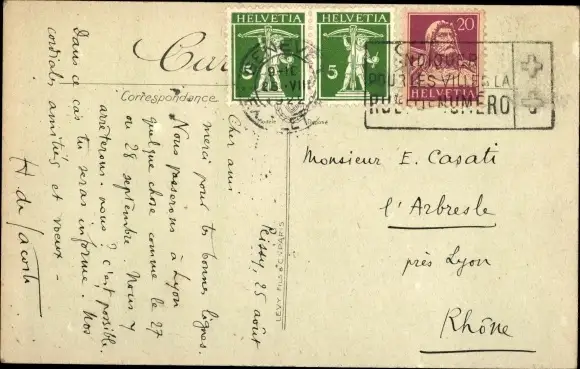 HELVETIA
5
HELVETIA
5
20
HELVETIA
Car
Correspondance
GENEVE
INDIQUER
POUR LES VILLES LA
RUE ET NUMÉRO
Monsieur E. Casati
l'Arbresle
près Lyon
Rhône
LEVY FILS & Cº PARIS
25 août
Cher ami
merci pour tes bonnes lignes.
Nous passerons à Lyon
quelque chose comme le 27
ou 28 septembre. Nous y
arrêterons-nous? c'est possible.
Dans ce cas tu seras informé. Nos
cordiales amitiés et vœux -